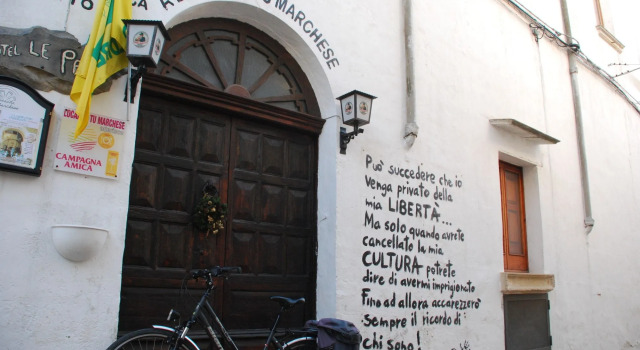 MARCHESE
LE
MARCHESE
CAMPAGNA
AMICA
Può succedere che io
venga privato della
mia LIBERTÀ...
Ma solo quando avrete
cancellato la mia
CULTURA potrete
dire di avermi imprigionato
Fino ad allora accarezzerò
sempre il ricordo di
chi sono!